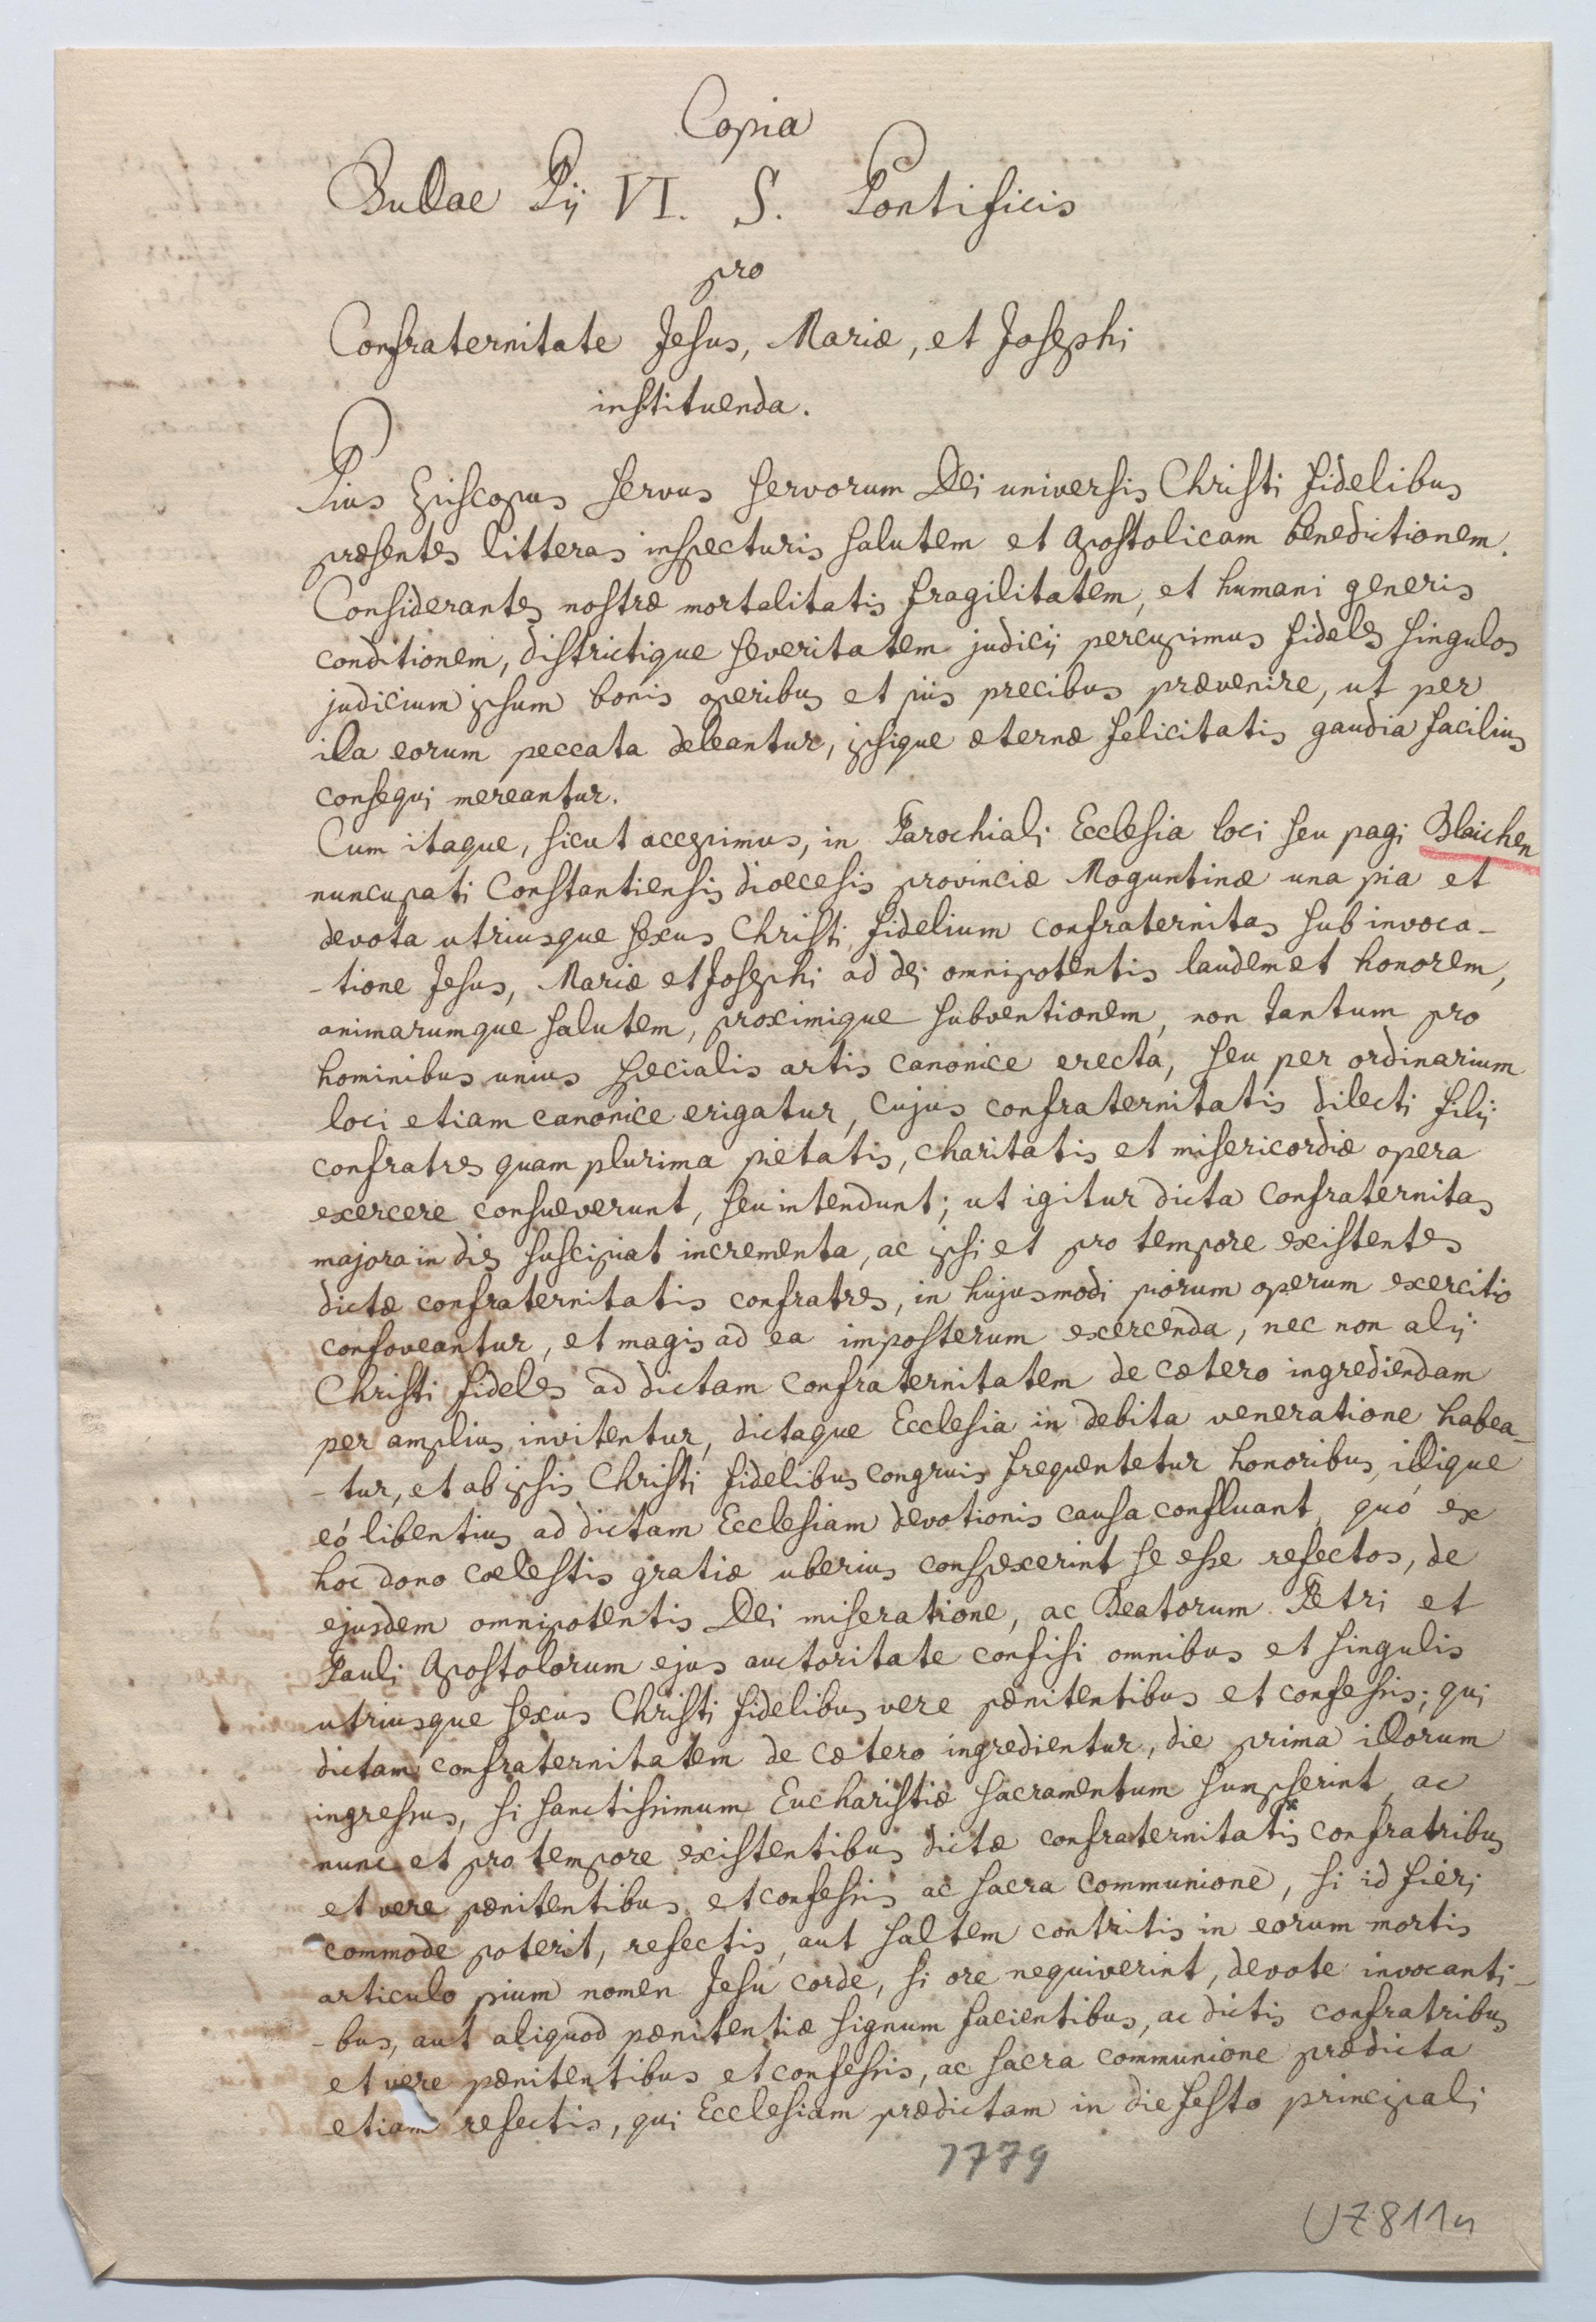 Copia
Bullae Pij VI. S. Pontificis
pro
Confraternitate Jesus, Mariæ, et Josephi
instituenda.
Pius Episcopus servus servorum Dei universis Christi fidelibus
præsentes litteras inspecturis salutem et apostolicam benedictionem.
Considerantes nostræ mortalitatis fragilitatem, et humani generis
conditionem, districtique severitatem judicij percupimus fideles singulos
judicium ipsum bonis operibus et piis precibus prævenire, ut per
illa eorum peccata deleantur, ipsique æternæ felicitatis gaudia facilius
consequi mereantur.
Cum itaque, sicut accepimus, in Parochiali Ecclesia loci seu pagi Blaichen
nuncupati Constantiensis dioecesis provinciæ Moguntinæ una pia et
devota utriusque sexus Christi fidelium confraternitas sub invoca-
-tione Jesus, Mariæ et Josephi ad dei omnipotentis laudem et honorem,
animarumque salutem, proximique subventionem, non tantum pro
hominibus unius specialis artis canonice erecta, seu per ordinarium
loci etiam canonice erigatur, cujus confraternitatis dilecti filij
confratres quam plurima pietatis, charitatis et misericordiæ opera
exercere consueverunt, seu intendunt; ut igitur dicta confraternitas
majora in dies suscipiat incrementa, ac ipsi et pro tempore existentes
dictæ confraternitatis confratres, in hujusmodi piorum operum exercitio
confoveantur, et magis ad ea imposterum exercenda, nec non alij
Christi fideles ad dictam confraternitatem de cætero ingrediendam
per amplius invitentur, dictaque Ecclesia in debita veneratione habea-
-tur, et ab ipsis Christi fidelibus congruis frequentetur honoribus, illique
eó libentius ad dictam Ecclesiam devotionis causa confluant, quó ex
hoc dono coelestis gratiæ uberius conspexerint se esse refectos, de
ejusdem omnipotentis Dei miseratione, ac Beatorum Petri et
Pauli Apostolorum ejus auctoritate confisi omnibus et singulis
utriusque sexus Christi fidelibus vere pænitentibus et confessis, qui
dictam confraternitatem de cætero ingredientur, die prima illorum
ingressus, si sanctissimum Eucharistiæ sacramentum sumpserint, ac
nunc et pro tempore existentibus dictæ confraternitatis confratribus
et vere pænitentibus et confessis ac sacra communione, si id fieri
commode poterit, refectis, aut saltem contritis in eorum mortis
articulo pium nomen Jesu corde, si ore nequiverint, devote invocanti-
-bus, aut aliquod pænitentiæ signum facientibus, ac dictis confratribus
et vere pænitentibus et confessis, ac sacra communione prædicta
etiam refectis, qui Ecclesiam prædictam in die festo principali
1779
UZ811